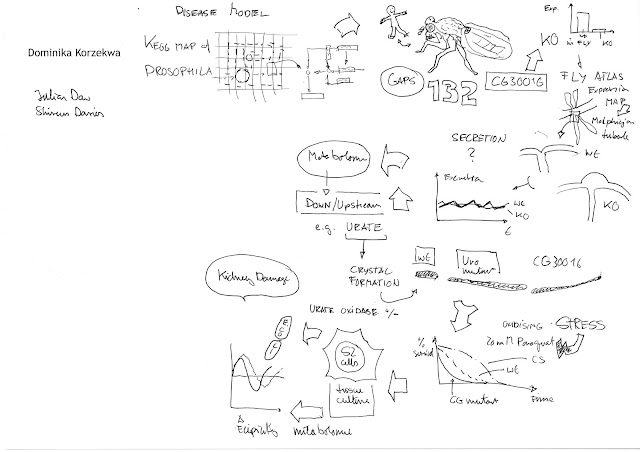 DISEASE MODEL
Dominika Korzekwa
KEGG MAP of
DROSOPHILA
Julian Dow
Shireen Davies
GAPS
132
CG30016
KO
Exp.
in FLY KO
FLY ATLAS
Expression
MAP
Malpighian
tubule
WE
KO
SECRETION
?
Excreta
WE
KO
t
Metabolome
DOWN/Upstream
e.g. URATE
CRYSTAL
FORMATION
WE
Uro
mutant
CG30016
Kidney Damage
URATE OXIDASE +/-
S2
cells
tissue
culture
metabolome
OXIDISING STRESS
20mM Paraquat
%
survival
CS
WE
CG mutant